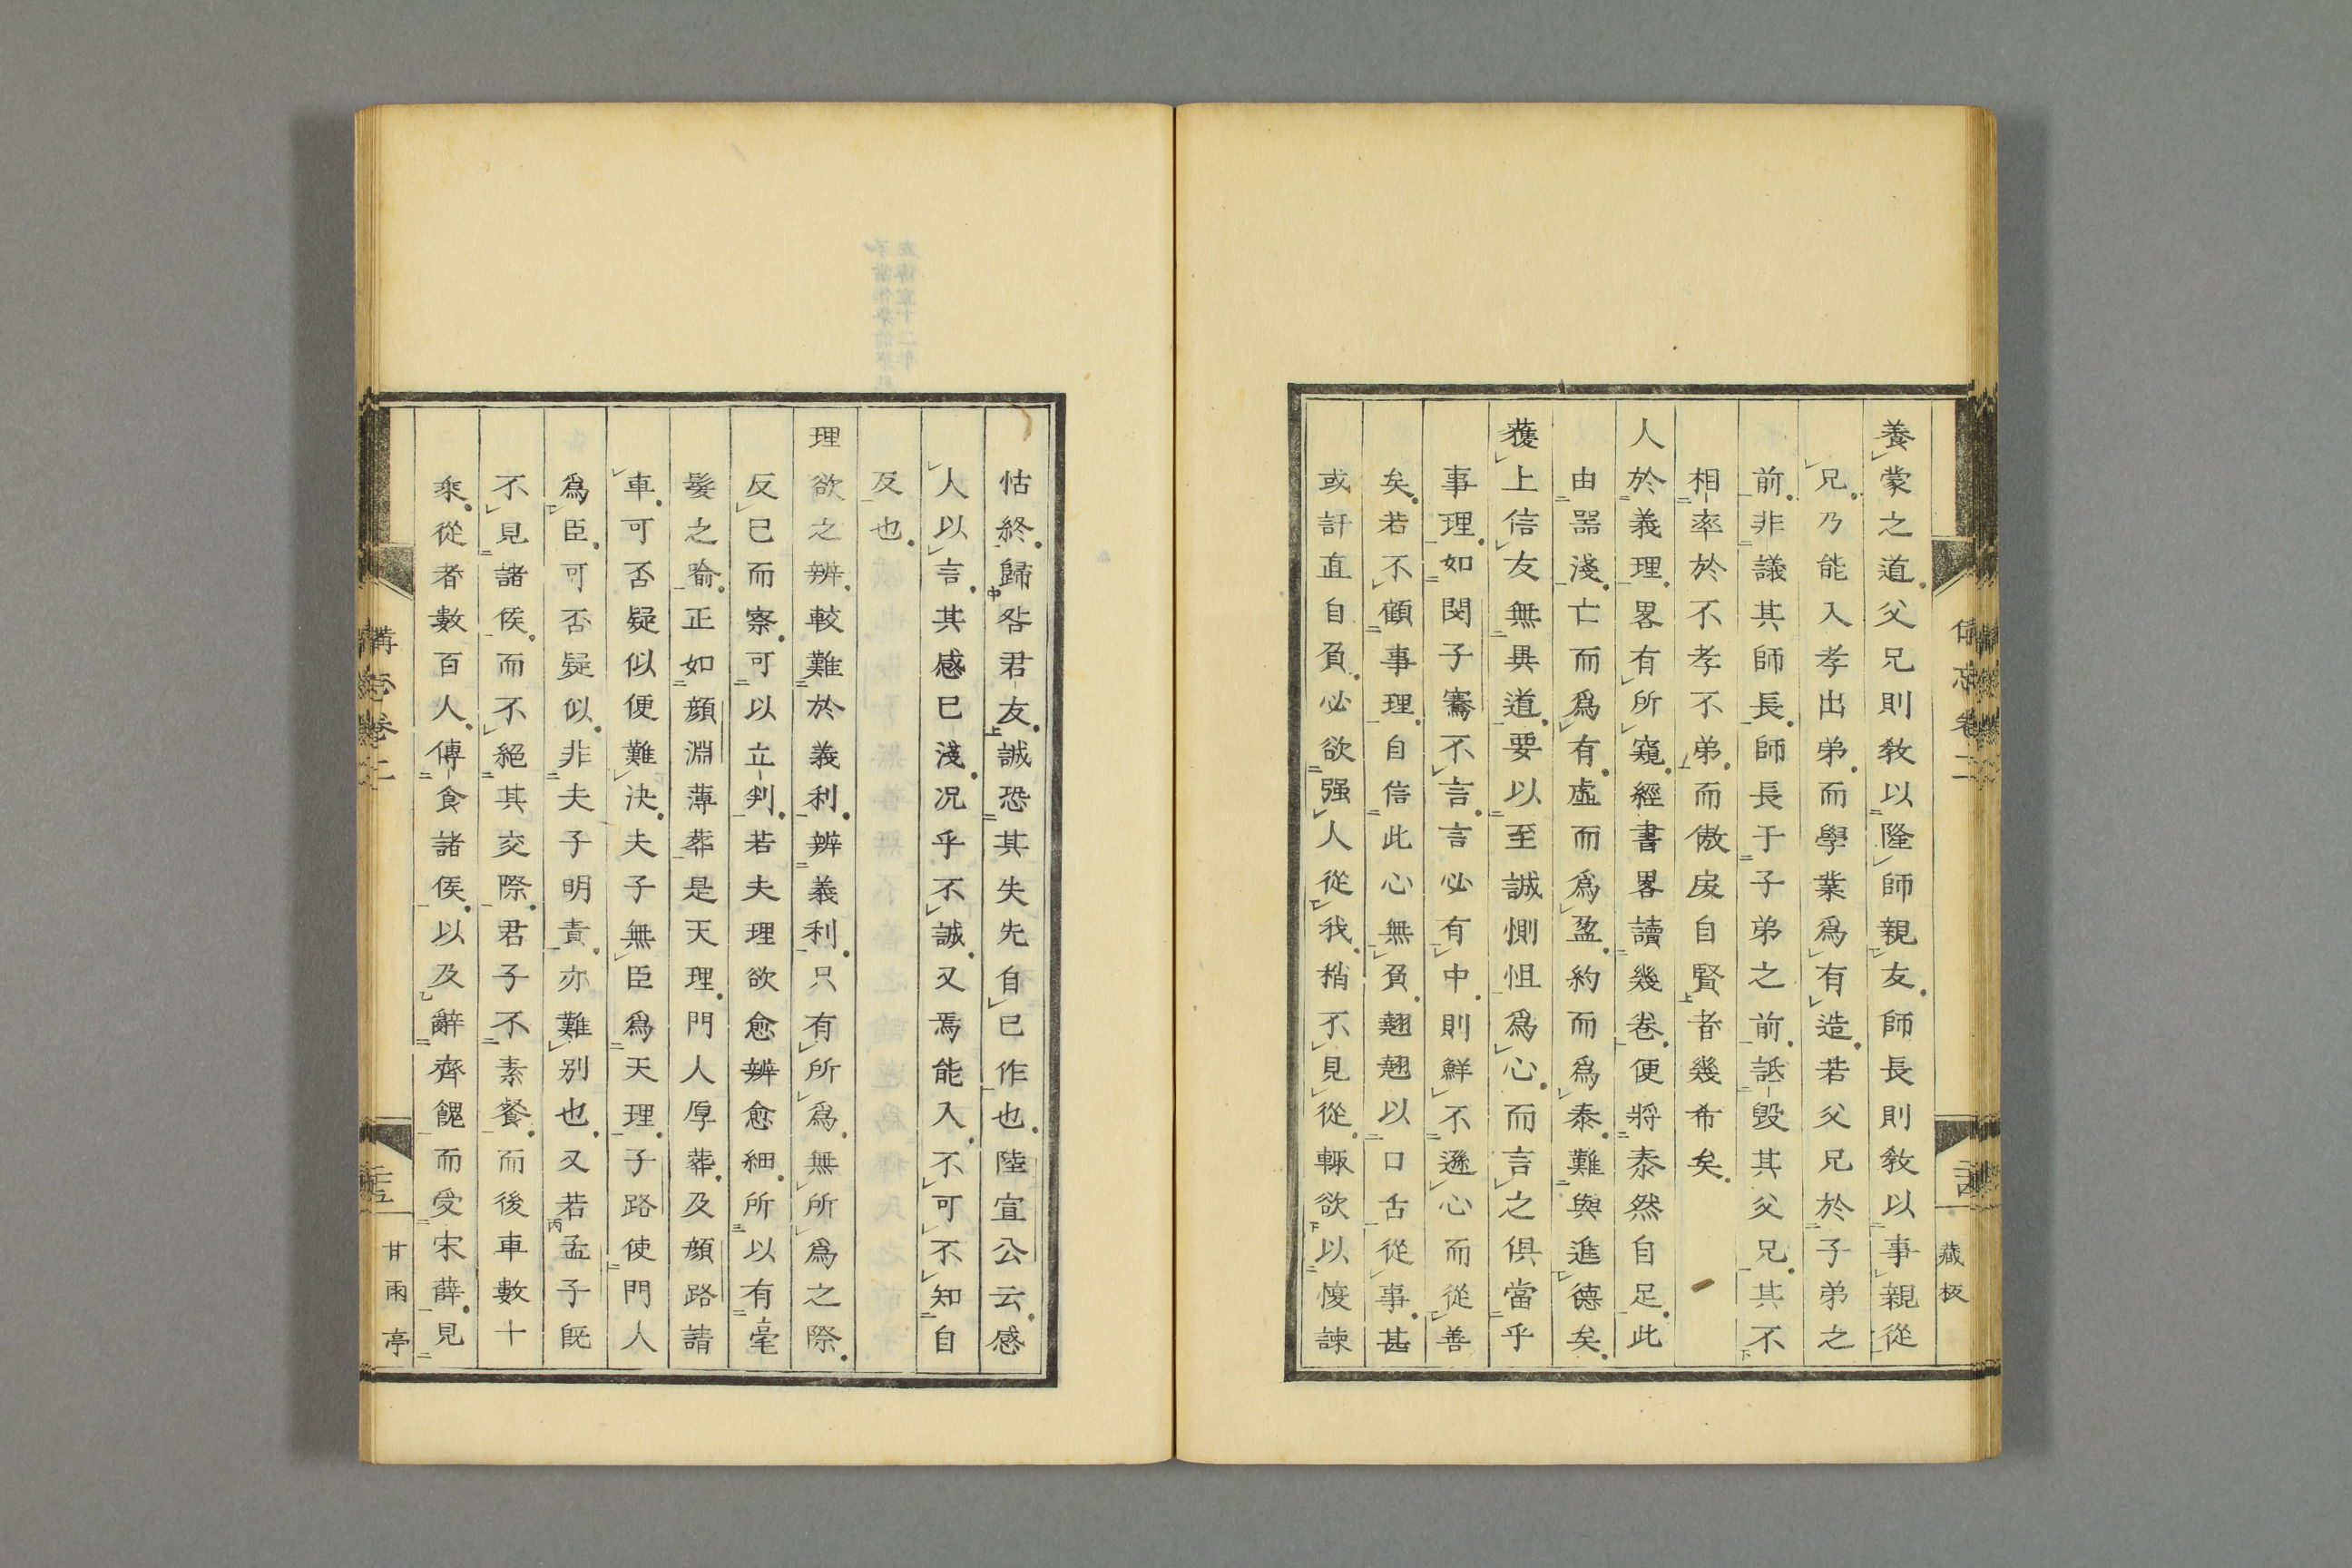 養蒙之道。父兄則敎以隆師親友。師長則敎以事親從
兄。乃能入孝出弟。而學業爲有造。若父兄於子弟之
前。非議其師長。師長于子弟之前。詆毀其父兄。其不
相率於不孝不弟。而傲戾自賢者幾希矣。
人於義理。畧有所窺。經書畧讀幾卷。便將泰然自足。此
由器淺。亡而爲有。虛而爲盈。約而爲泰。難與進德矣。
獲上信友無異道。要以至誠惻怛爲心。而言之俱當乎
事理。如閔子騫不言。言必有中。則鮮不遜心而從善
矣。若不顧事理。自信此心無負。翹翹以口舌從事。甚
或訐直自負。必欲强人從我。稍不見從。輙欲以愎諫
備忘卷二
二十四
藏板
怙終。歸咎君友。誠恐其失先自己作也。陸宣公云。感
人以言。其感已淺。况乎不誠。又焉能入。不可不知自
反也。
理欲之辨。較難於義利。辨義利。只有所爲。無所爲之際。
反已而察。可以立判。若夫理欲愈辨愈細。所以有毫
髮之喻。正如顏淵薄葬。是天理。門人厚葬。及顏路請
車。可否疑似便難決。夫子無臣爲天理。子路使門人
爲臣。可否疑似。非夫子明責。亦難别也。又若孟子旣
不見諸侯。而不絕其交際。君子不素餐。而後車數十
乘。從者數百人。傳食諸侯。以及辭齊餽而受宋薛。見
備忘卷二
二十五
甘雨亭